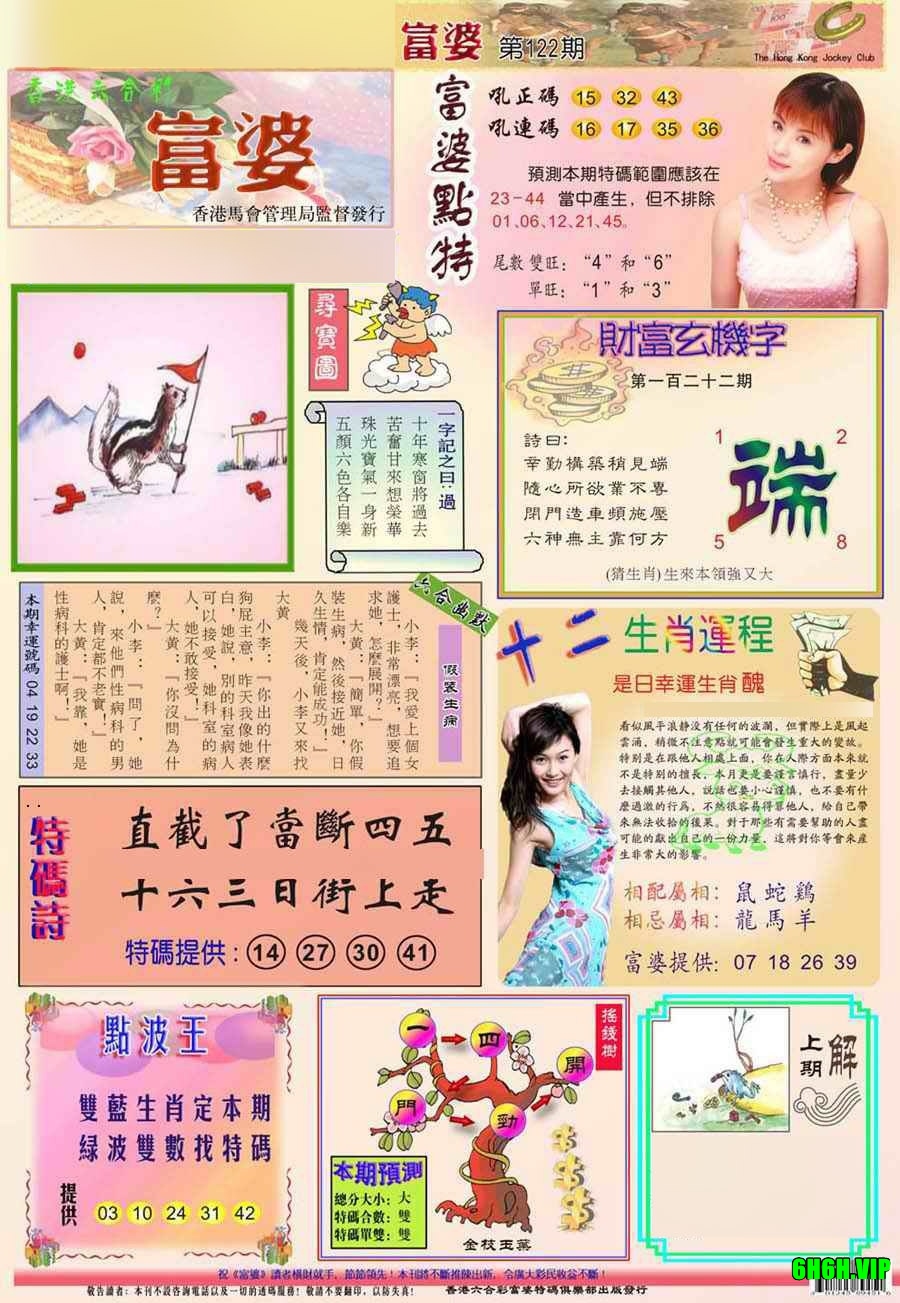 富婆 第122期
The Hong Kong Jockey Club
香港六合彩
富婆
香港馬會管理局監督發行
富婆點特
吼正碼 15 32 43
吼連碼 16 17 35 36
預測本期特碼範圍應該在
23-44 當中產生，但不排除
01、06、12、21、45。
尾數雙旺：“4”和“6”
單旺：“1”和“3”
尋寶圖
一字記之曰：過
十年寒窗將過去
苦奮甘來想榮華
珠光寶氣一身新
五顏六色各自樂
財富玄機字
第一百二十二期
詩曰：
幸勤構築稍見端
隨心所欲業不專
閉門造車頻施壓
六神無主靠何方
1 2
端
5 8
(猜生肖)生來本領強又大
六合幽默
假裝生病
小李：「我愛上個女
護士，非常漂亮，想要追
求她，怎麼展開？」
大黃：「簡單，你假
裝生病，然後接近她，日
久生情，肯定能成功！」
幾天後，小李又來找
大黃
小李：「你出的什麼
狗屁主意，昨天我像她表
白，她說，別的科室病人
可以接受，她科室的病
人，她不敢接受！」
大黃：「你沒問為什
麼？」
小李：「問了，她
說，來他們性病科的男
人，肯定都不老實！」
大黃：「我靠，她是
性病科的護士啊！」
本期幸運號碼 04 19 22 33
十二生肖運程
是日幸運生肖 醜
看似風平浪静没有任何的波瀾，但實際上是風起
雲涌，稍微不注意點就可能會發生重大的變故。
特别是在跟他人相處上面，你在人際方面本來就
不是特别的擅長，本月更是要謹言慎行，盡量少
去接觸其他人，説話也要小心謹慎，也不要有什
麽過激的行爲，不然很容易得罪他人，給自己帶
來無法收拾的後果。對于那些有需要幫助的人盡
可能的獻出自己的一份力量，這將對你等會來産
生非常大的影響。
相配屬相：鼠蛇鷄
相忌屬相：龍馬羊
富婆提供：07 18 26 39
特碼詩
直截了當斷四五
十六三日街上走
特碼提供：14 27 30 41
點波王
雙藍生肖定本期
綠波雙數找特碼
提供 03 10 24 31 42
搖錢樹
一 四 開
門 勁
本期預測
總分大小：大
特碼合數：雙
特碼單雙：雙
金枝玉葉
上期解
祝《富婆》讀者橫財就手，節節領先！本刊將不斷推陳出新，令廣大彩民收益不斷！
敬告讀者：本刊不設咨詢電話以及一切的透碼服務！敬請不要翻印，以防失真！ 香港六合彩富婆特碼俱樂部出版發行
6H6H.VIP